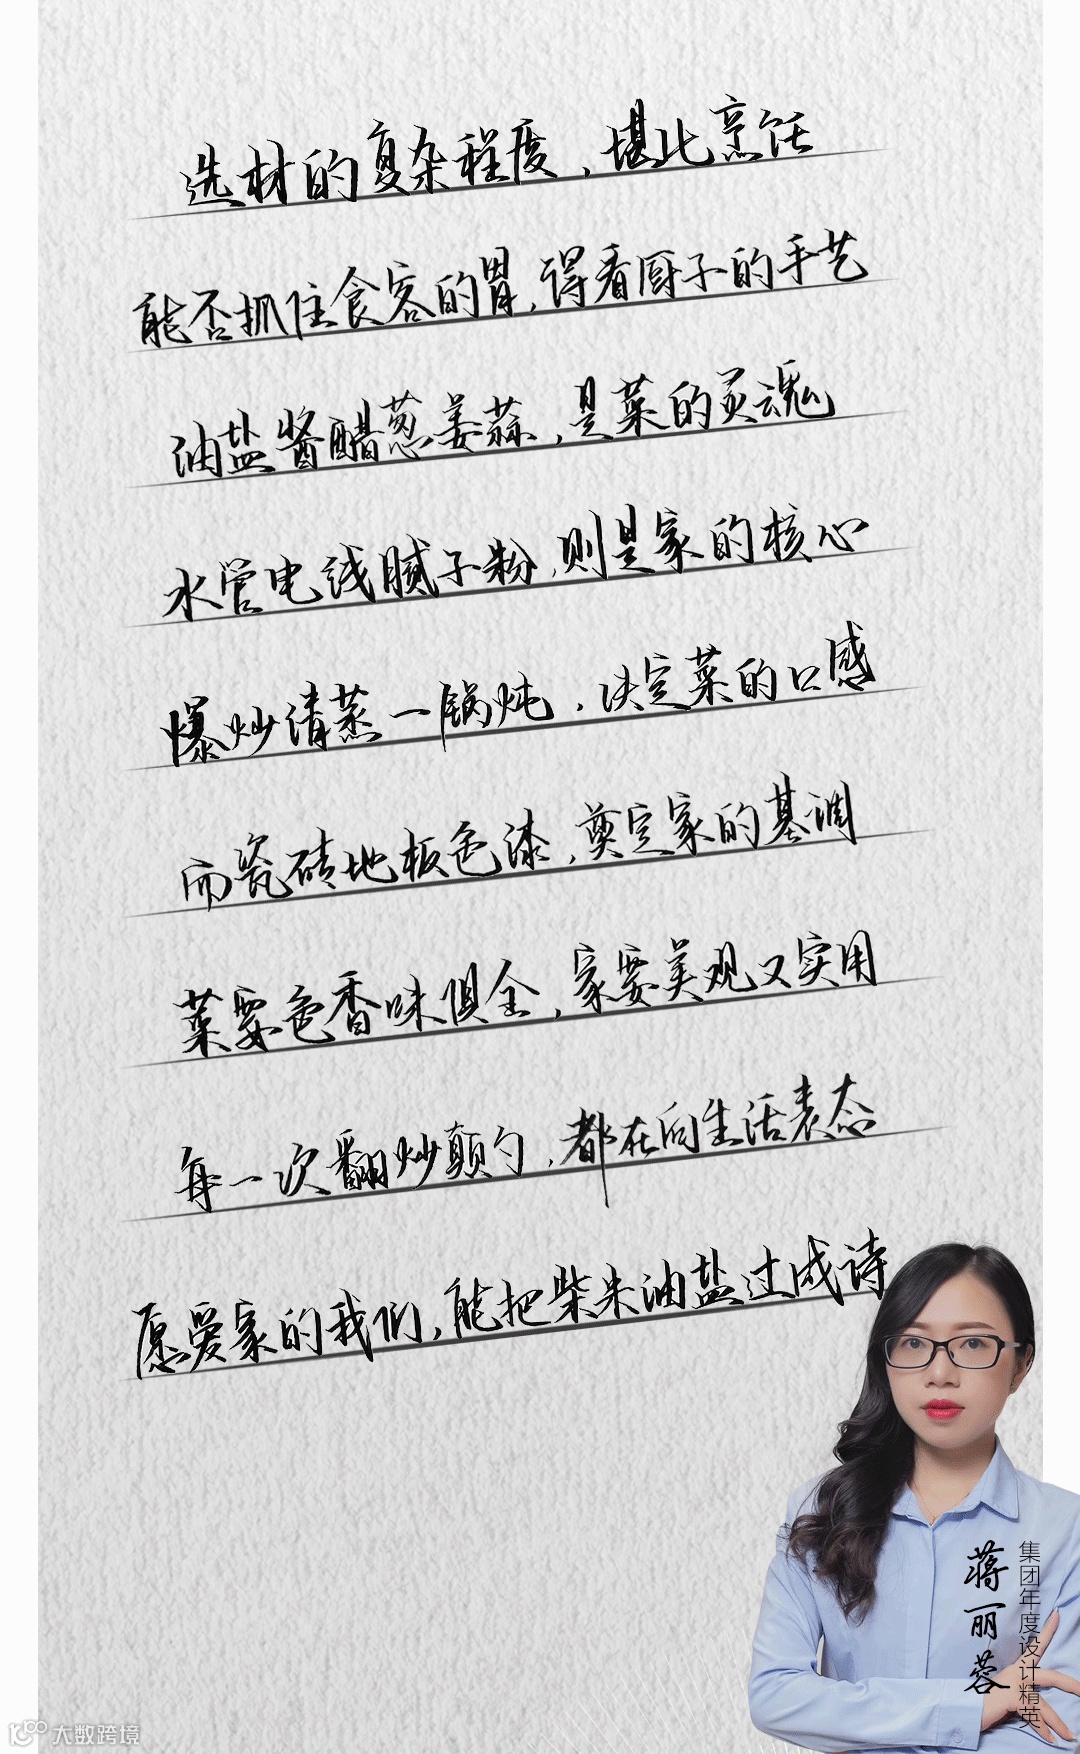 选材的复杂程度，堪比烹饪
能否抓住食客的胃，得看厨子的手艺
油盐酱醋葱姜蒜，是菜的灵魂
水管电线腻子粉，则是家的核心
爆炒清蒸一锅炖，决定菜的口感
而瓷砖地板色漆，奠定家的基调
菜要色香味俱全，家要美观又实用
每一次翻炒颠勺，都在向生活表态
愿爱家的我们，能把柴米油盐过成诗
集团年度设计精英
蒋丽蓉
大数跨境